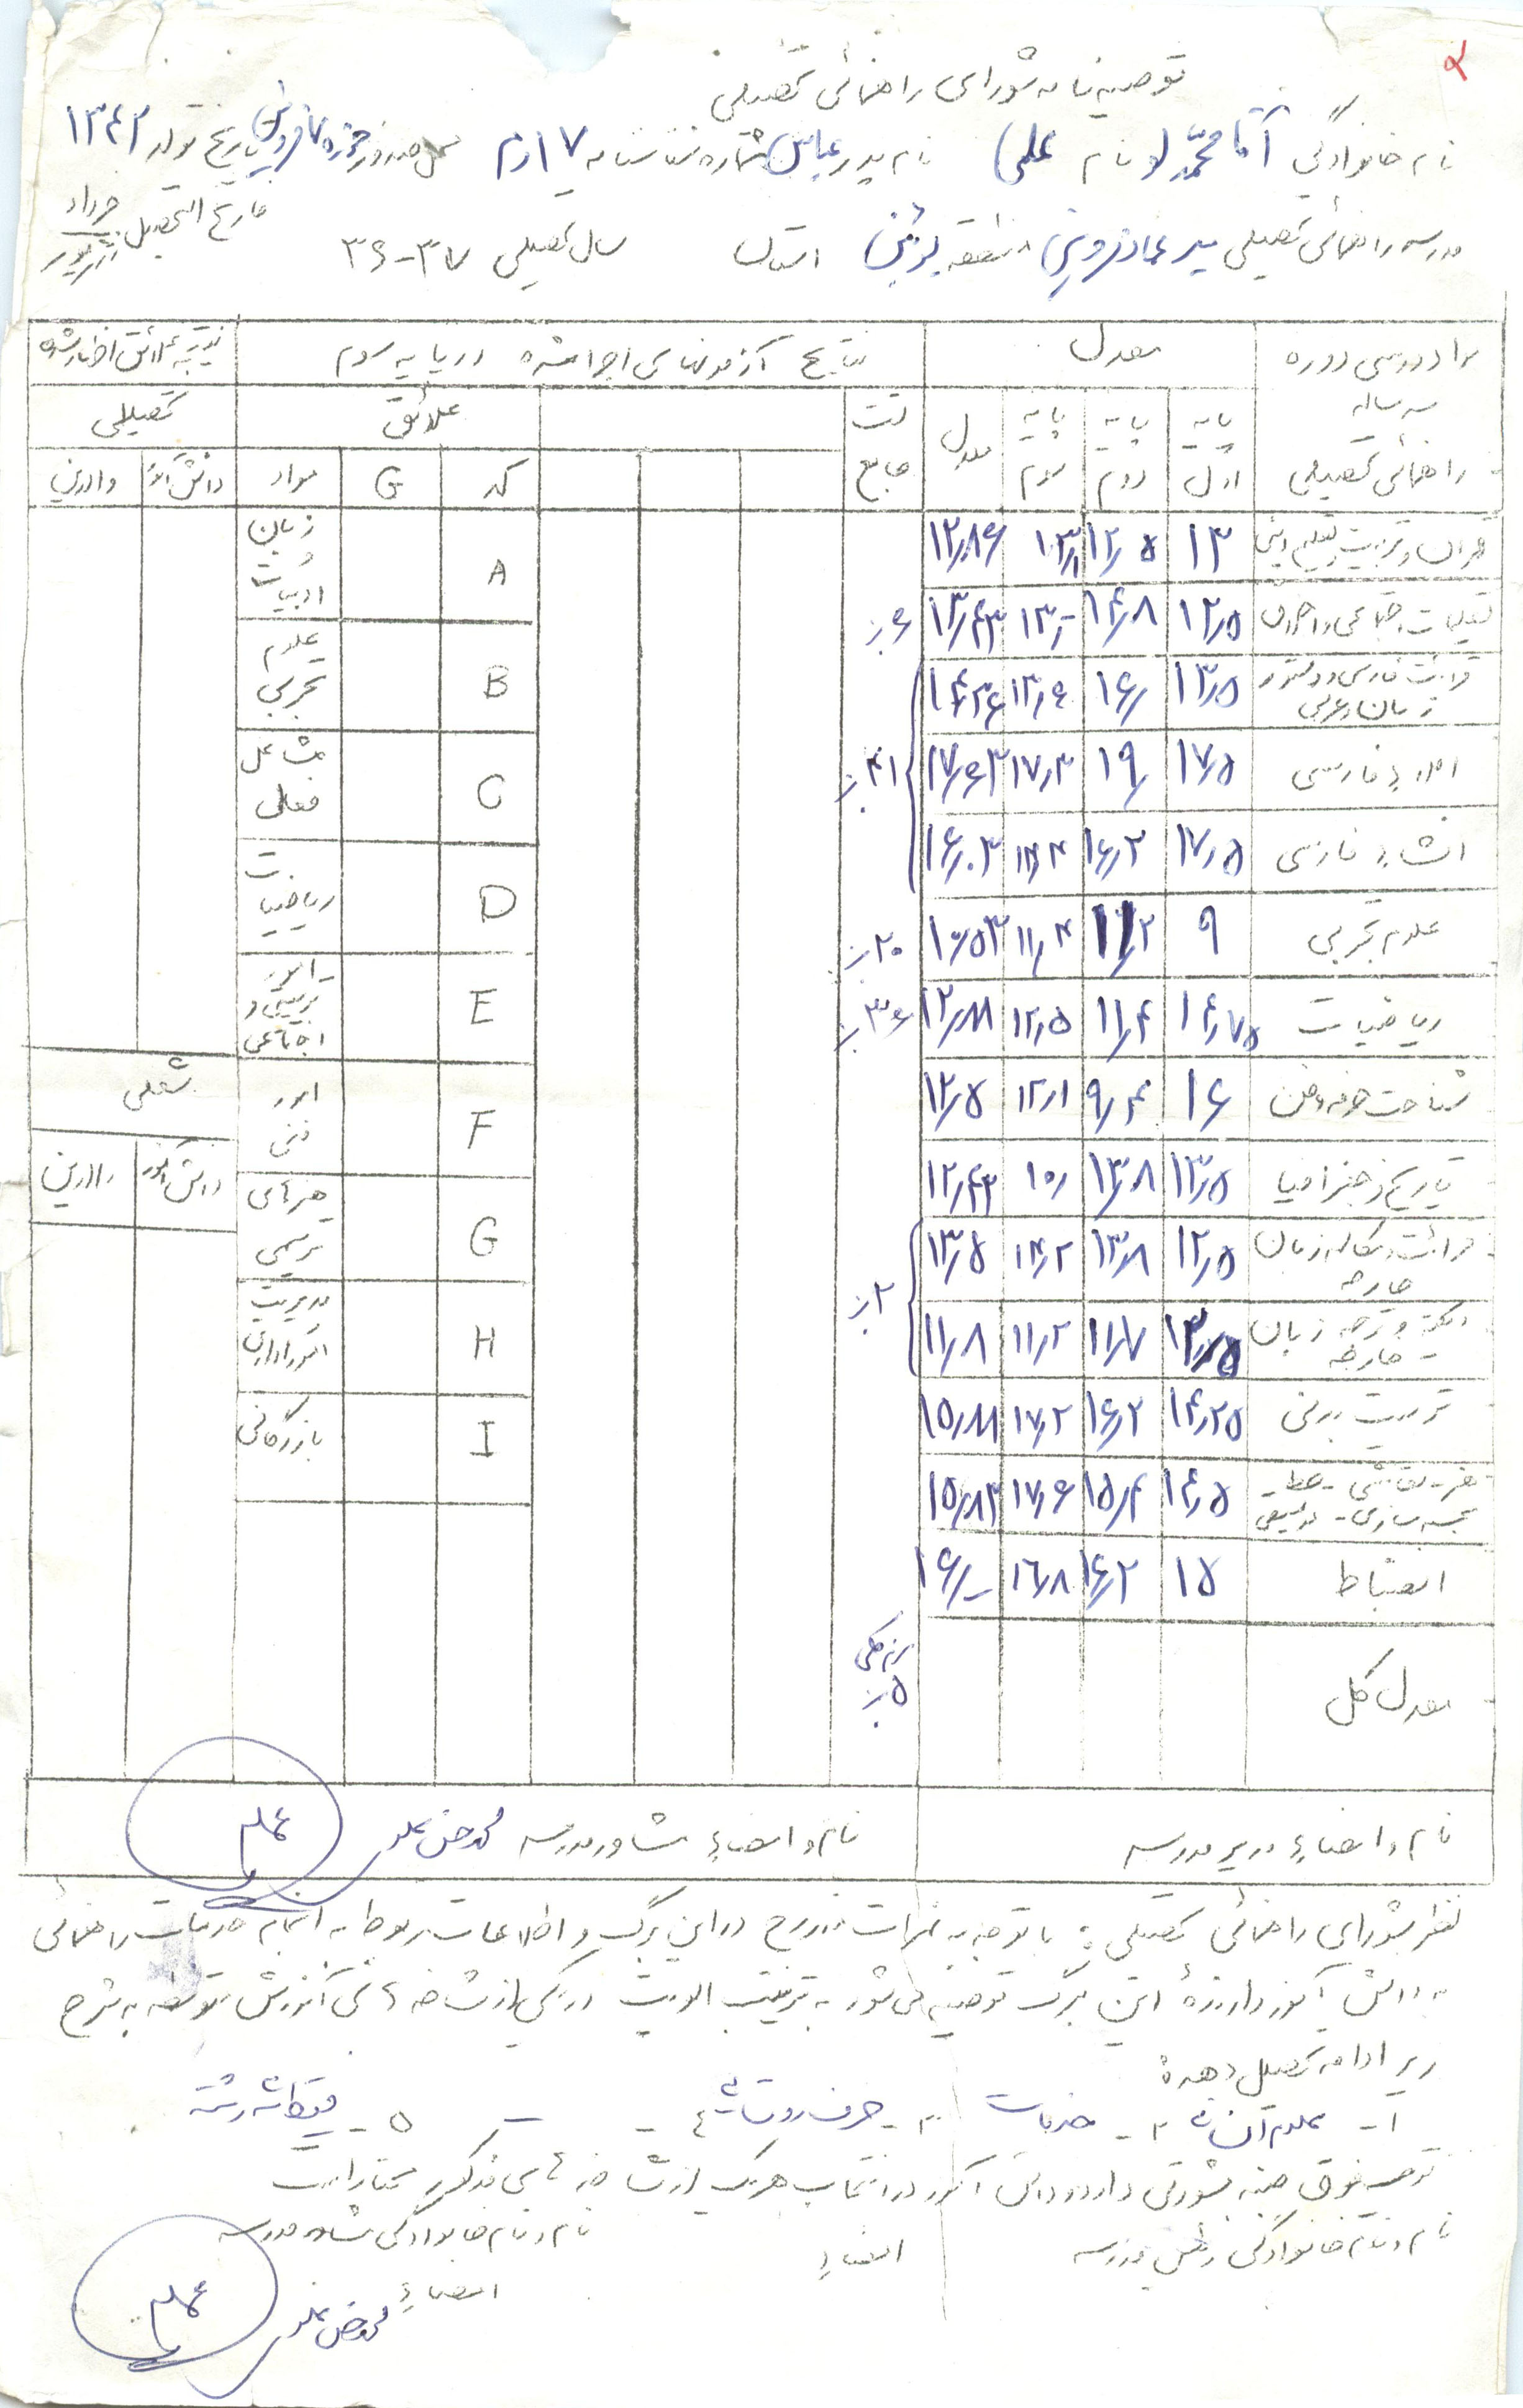 ۲
توصیه نامه شورای راهنمائی تحصیلی
نام خانوادگی آقامحمدلو نام علی نام پدر عباس شماره شناسنامه ۱۷ رم محل صدور حوزه ۷ قزوین تاریخ تولد ۱۳۴۲
مدرسه راهنمائی تحصیلی میرعماد قزوین منطقه بوئین استان سال تحصیلی ۳۷-۳۶ فارغ التحصیل خرداد شهریور
مواد درسی دوره سه ساله راهنمائی تحصیلی معدل نتایج آزمونهای اجرا شده در پایه سوم نتیجه علائق اظهار شده
پایه اول پایه دوم پایه سوم معدل تست جامع علائق تحصیلی
کد G مواد دانش آموز والدین
قرآن و تربیت و تعلیم دینی ۱۳ ۱۲/۵ ۱۳/۱ ۱۲/۸۶ A زبان و ادبیات
تعلیمات اجتماعی و اخلاق ۱۲/۵ ۱۴/۸ ۱۳/- ۱۳/۴۳ ۶٪ B علوم تجربی
قرائت فارسی و دستور زبان و عربی ۱۳/۵ ۱۶/ ۱۳/۶ ۱۴/۳۶
املاء فارسی ۱۷/۵ ۱۹/ ۱۷/۴ ۱۷/۶۳ ۴۱٪ C مشاغل فعلی
انشاء فارسی ۱۷/۵ ۱۶/۲ ۱۴/۴ ۱۶/۰۳ D ریاضیات
علوم تجربی ۹ ۱۱/۲ ۱۱/۴ ۱۰/۵۳ ۲۰٪
ریاضیات ۱۴/۷۵ ۱۱/۴ ۱۲/۵ ۱۲/۸۸ ۳۶٪ E امور تربیتی و اجتماعی
شناخت حرفه و فن ۱۶ ۹/۴ ۱۲/۱ ۱۲/۵ F امور فنی شغلی
تاریخ و جغرافیا ۱۳/۵ ۱۳/۸ ۱۰/ ۱۲/۴۳ دانش آموز والدین
قرائت و مکالمه زبان خارجه ۱۲/۵ ۱۳/۸ ۱۴/۲ ۱۳/۵ G هنرهای ترسیمی
دیکته و ترجمه زبان خارجه ۱۲/۵ ۱۱/۷ ۱۱/۲ ۱۱/۸ ۲٪ H مدیریت امور اداری
تربیت بدنی ۱۴/۲۵ ۱۶/۲ ۱۷/۲ ۱۵/۸۸ I بازرگانی
هنر - نقاشی - خط - مجسمه سازی - موسیقی ۱۴/۵ ۱۵/۴ ۱۷/۶ ۱۵/۸۳
انضباط ۱۵ ۱۶/۲ ۱۶/۸ ۱۶/-
معدل کل ۵٪
نام و امضاء مدیر مدرسه نام و امضاء مشاور مدرسه
نظر شورای راهنمائی تحصیلی : با توجه به نمرات مندرج در این برگ و اطلاعات مربوط به انجام خدمات راهنمائی
به دانش آموز دارنده این برگ توصیه می شود به ترتیب اولویت در یکی از شاخه های آموزش متوسطه به شرح
زیر ادامه تحصیل دهد:
۱- علوم انسانی ۲- خدمات ۳- حرف روستائی ۴ - ۵-
توصیه فوق جنبه مشورتی دارد و دانش آموز در انتخاب هر یک از شاخه های مذکور مختار است
نام و نام خانوادگی رئیس مدرسه امضاء نام و نام خانوادگی مشاور مدرسه
امضاء